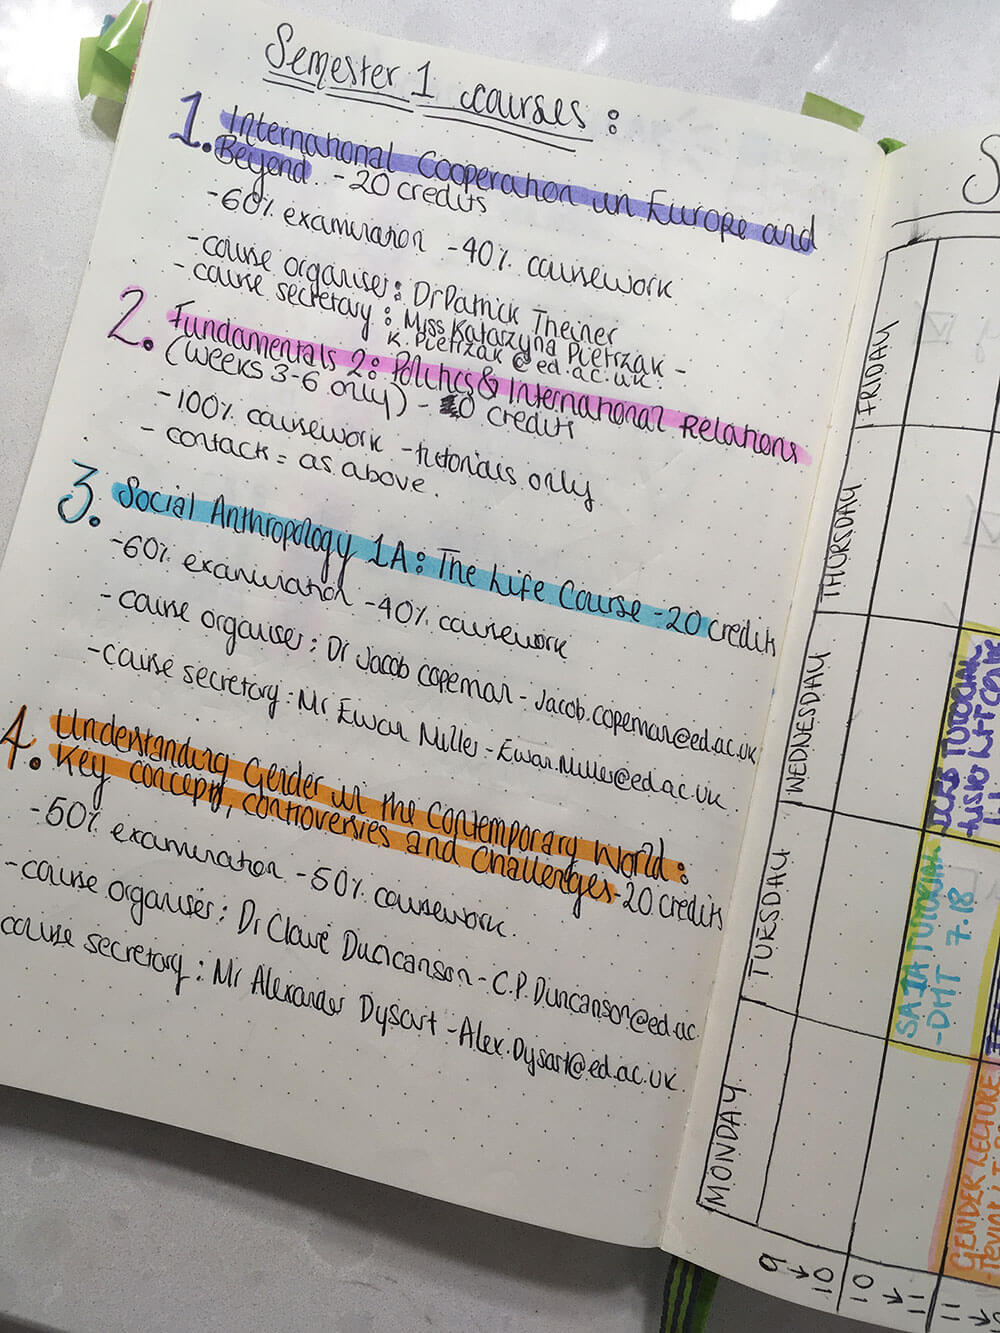 Semester 1 courses :
1. International Cooperation in Europe and
Beyond - 20 credits
- 60% examination - 40% coursework
- course organiser : Dr Patrick Theiner
- course secretary : Miss Katarzyna Pietrzak -
K.Pietrzak@ed.ac.uk.
2. Fundamentals 2: Politics & International Relations
(weeks 3-6 only) - 0 credits
- 100% coursework - tutorials only
- contact = as above.
3. Social Anthropology 1A: The Life Course - 20 credits
- 60% examination - 40% coursework
- course organiser : Dr Jacob Copeman - Jacob.copeman@ed.ac.uk
- course secretary : Mr Ewan Miller - Ewan.Miller@ed.ac.uk
4. Understanding Gender in the Contemporary World:
Key concepts, controversies and challenges - 20 credits
- 50% examination - 50% coursework.
- course organiser : Dr Claire Duncanson - C.P.Duncanson@ed.ac.
course secretary : Mr Alexander Dysart - Alex.Dysart@ed.ac.uk
S
FRIDAY
THURSDAY
WEDNESDAY
TUESDAY
MONDAY
TUTORIAL
SA 1A TUTORIAL
- DHT 7.18
GENDER LECTURE
9 → 10
10 → 11
11 →